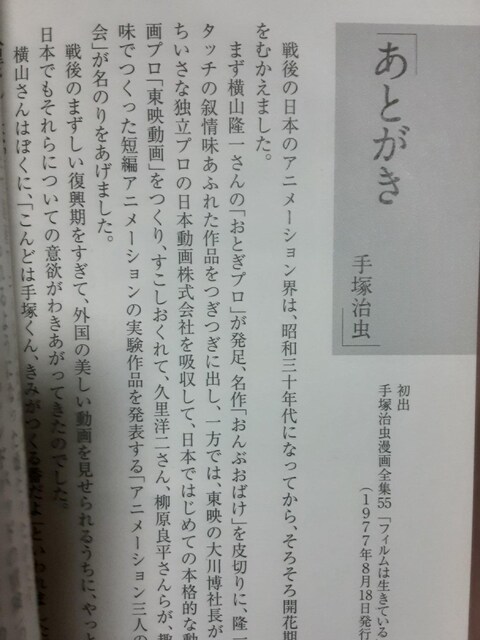 「あとがき
手塚治虫」
初出
手塚治虫漫画全集55「フィルムは生きている
(1977年8月18日発行
戦後の日本のアニメーション界は、昭和三十年代になってから、そろそろ開花期
をむかえました。
まず横山隆一さんの「おとぎプロ」が発足、名作「おんぶおばけ」を皮切りに、隆一
タッチの叙情味あふれた作品をつぎつぎに出し、一方では、東映の大川博社長が
ちいさな独立プロの日本動画株式会社を吸収して、日本ではじめての本格的な動
画プロ「東映動画」をつくり、すこしおくれて、久里洋二さん、柳原良平さんらが、趣
味でつくった短編アニメーションの実験作品を発表する「アニメーション三人の
会」が名のりをあげました。
戦後のまずしい復興期をすぎて、外国の美しい動画を見せられるうちに、やっと
日本でもそれらについての意欲がわきあがってきたのでした。
横山さんはぼくに、「こんどは手塚くん、きみがつくる番だよ」といわれま